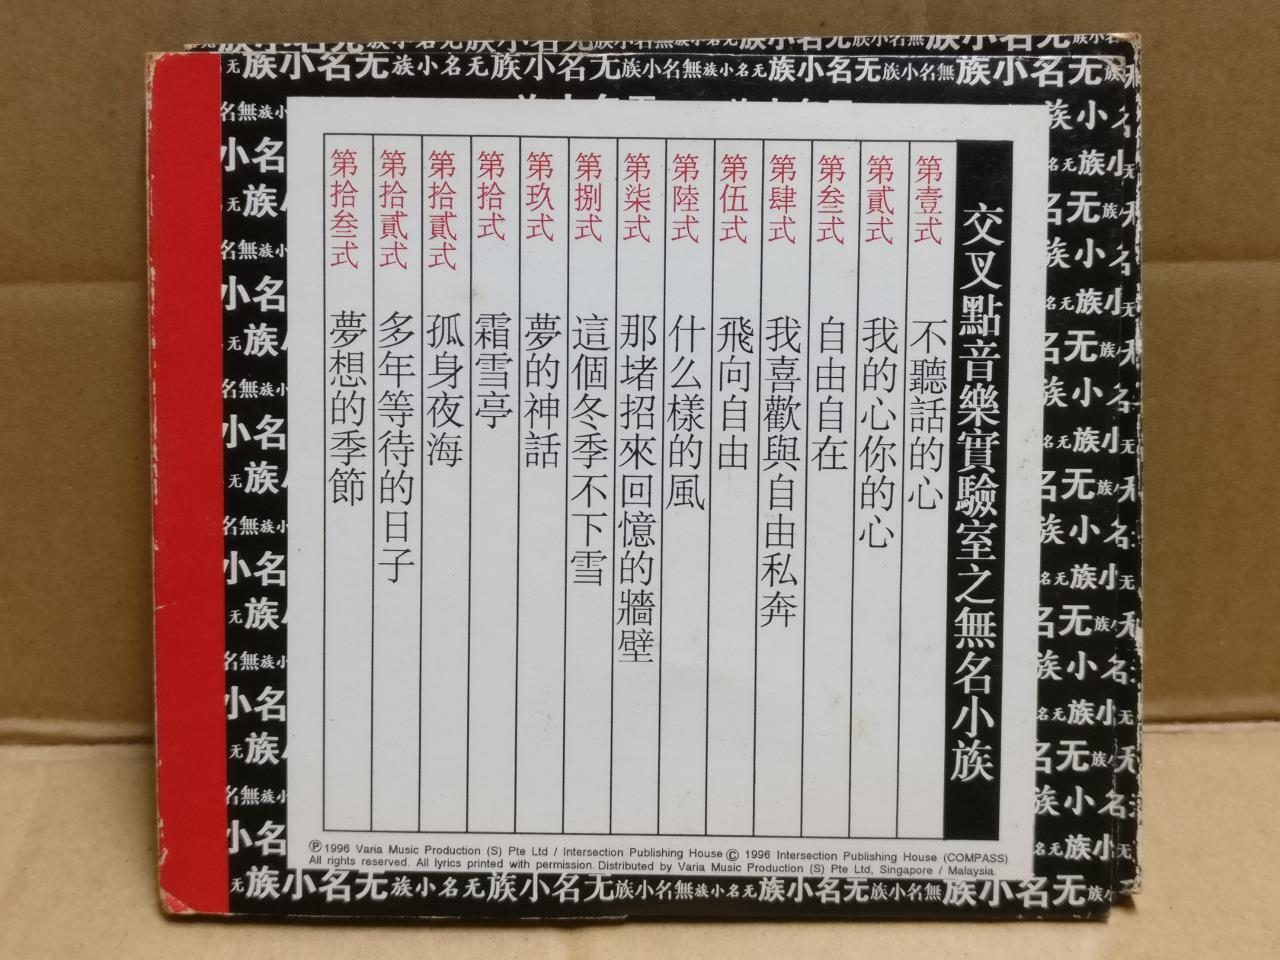 交叉點音樂實驗室之無名小族
第壹式 不聽話的心
第貳式 我的心你的心
第叁式 自由自在
第肆式 我喜歡與自由私奔
第伍式 飛向自由
第陸式 什么樣的風
第柒式 那堵招來回憶的牆壁
第捌式 這個冬季不下雪
第玖式 夢的神話
第拾式 霜雪亭
第拾貳式 孤身夜海
第拾貳式 多年等待的日子
第拾叁式 夢想的季節
Ⓟ1996 Varia Music Production (S) Pte Ltd / Intersection Publishing House © 1996 Intersection Publishing House (COMPASS)
All rights reserved. All lyrics printed with permission. Distributed by Varia Music Production (S) Pte Ltd, Singapore / Malaysia.
无族小名无族小名无族小名无族小名無族小名无族小名无族小名無族小名无
无族小名无族小名无族小名无族小名無族小名无族小名无族小名無族小名无